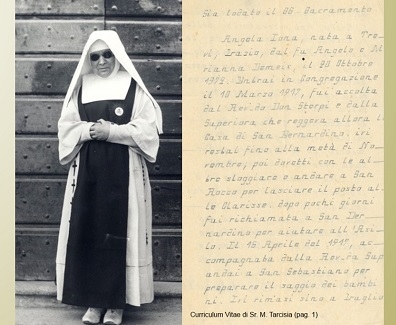 Sia lodato il SS. Sacramento
Angela Iona, nata a Tre-
vi, Lazio, dal fu Angelo e M
rianna Iemois, il 30 Ottobre
Entrai in Congregazione
il 18 Marzo 1917, fui accolta
dal Rev.do Don Sterpi e dalla
Superiora che reggeva allora l
Casa di San Bernardino. ivi
restai fino alla metà di No-
vembre; poi dovetti con le al-
tre sloggiare e andare a San
Rocco per lasciare il posto al
le Clarisse. dopo pochi giorni
fui richiamata a San Ber-
nardino per aiutare all'Asi-
lo. Il 16 Aprile del 1917, ac-
compagnata dalla Rev.ra Sup
andai a San Sebastiano per
preparare il saggio dei bambi
ni. Ivi rimasi sino a luglio
Curriculum Vitae di Sr. M. Tarcisia (pag. 1)